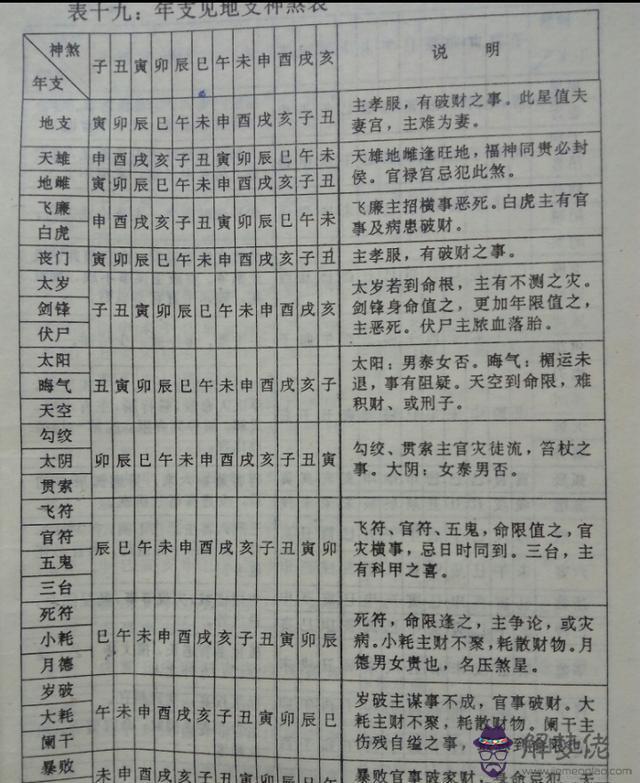 表十九：年支见地支神煞表
神煞 年支 子 丑 寅 卯 辰 巳 午 未 申 酉 戌 亥 说 明
地支 寅 卯 辰 巳 午 未 申 酉 戌 亥 子 丑 主孝服，有破财之事。此星值夫
妻宫，主难为妻。
天雄 申 酉 戌 亥 子 丑 寅 卯 辰 巳 午 未 天雄地雌逢旺地，福神同贵必封
地雌 寅 卯 辰 巳 午 未 申 酉 戌 亥 子 丑 侯。官禄宫忌犯此煞。
飞廉 申 酉 戌 亥 子 丑 寅 卯 辰 巳 午 未 飞廉主招横事恶死。白虎主有官
白虎 事及病患破财。
丧门 寅 卯 辰 巳 午 未 申 酉 戌 亥 子 丑 主孝服，有破财之事。
太岁 太岁若到命根，主有不测之灾。
剑锋 子 丑 寅 卯 辰 巳 午 未 申 酉 戌 亥 剑锋身命值之，更加年限值之，
伏尸 主恶死。伏尸主脓血落胎。
太阳 太阳：男泰女否。晦气：楣运未
晦气 丑 寅 卯 辰 巳 午 未 申 酉 戌 亥 子 退，事有阻疑。天空到命限，难
天空 积财、或刑子。
勾绞 勾绞、贯索主官灾徒流，笞杖之
太阴 卯 辰 巳 午 未 申 酉 戌 亥 子 丑 寅 事。大阴：女泰男否。
贯索
飞符 飞符、官符、五鬼，命限值之，官
官符 辰 巳 午 未 申 酉 戌 亥 子 丑 寅 卯 灾横事，忌日时同到。三台，主
五鬼 有科甲之喜。
三台
死符 死符，命限逢之，主争论，或灾
小耗 巳 午 未 申 酉 戌 亥 子 丑 寅 卯 辰 病。小耗主财不聚，耗散财物。月
月德 德男女贵也，名压煞星。
岁破 岁破主谋事不成，官事破财。大
大耗 午 未 申 酉 戌 亥 子 丑 寅 卯 辰 巳 耗主财不聚，耗散财物。阑干主
阑干 伤残自缢之事，
暴败 未 申 酉 戌 亥 子 丑 寅 卯 辰 巳 午 暴败官事破家财，
解梦佬